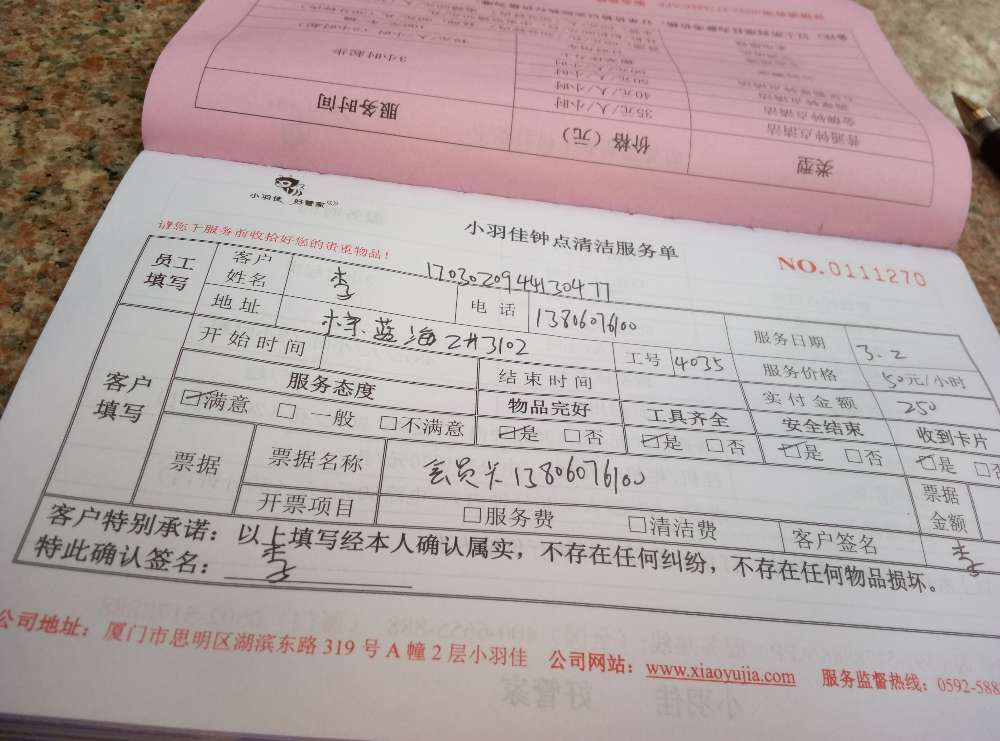 类型
价格（元）
服务时间
普通钟点清洁
35元/人/小时
3小时起步
40元/人/小时
50元/人/小时
小羽佳 好管家
小羽佳钟点清洁服务单
NO.0111270
请您于服务前收拾好您的贵重物品！
17030209441304 77
员工填写
客户姓名
李
电话
13806076100
服务日期
3.2
地址
蓝海2#3102
工号
4035
服务价格
50元/小时
客户填写
开始时间
结束时间
实付金额
250
服务态度
物品完好
工具齐全
安全结束
收到卡片
☑满意 □一般 □不满意
☑是 □否
☑是 □否
☑是 □否
☑是 □否
票据
票据名称
会员卡13806076100
票据金额
开票项目
□服务费 □清洁费
客户签名
李
客户特别承诺：以上填写经本人确认属实，不存在任何纠纷，不存在任何物品损坏。
特此确认签名：李
公司地址：厦门市思明区湖滨东路319号A幢2层小羽佳 公司网站：www.xiaoyujia.com 服务监督热线：0592-588